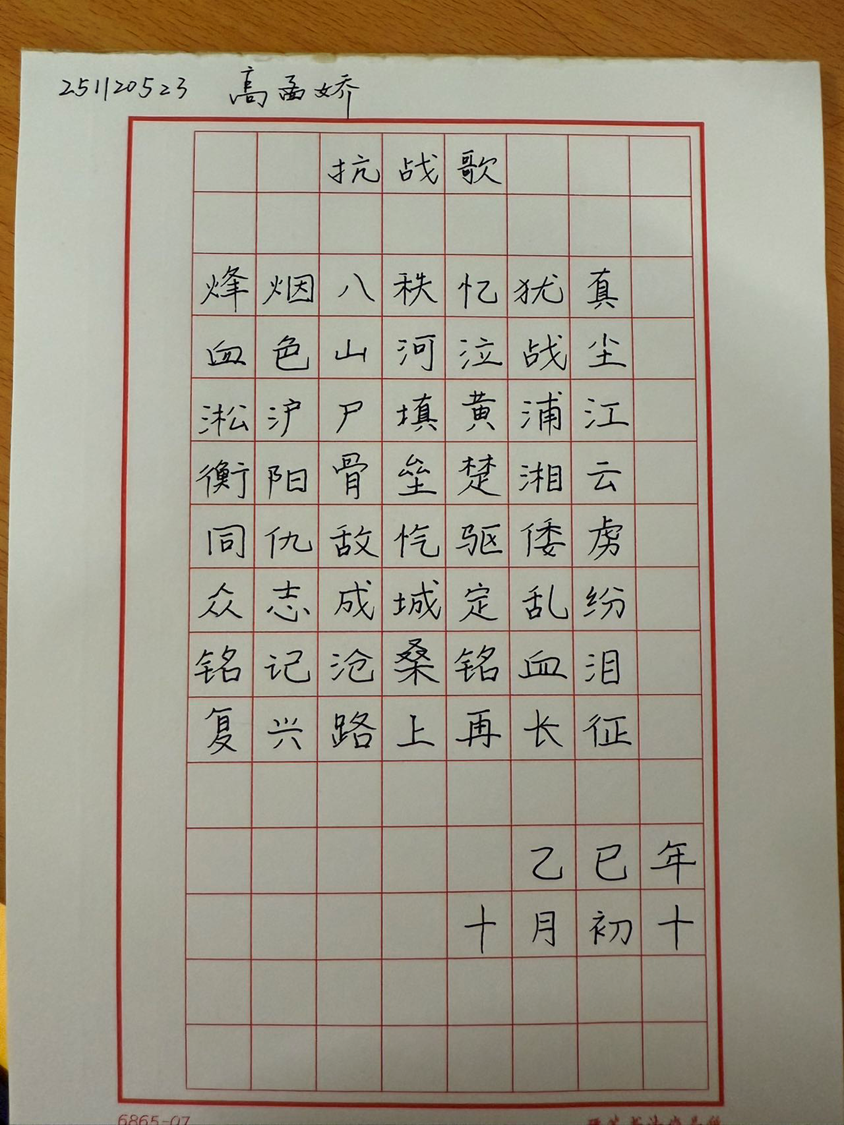 251120523 高函娇
抗战歌
烽烟八秩忆犹真
血色山河泣战尘
淞沪尸填黄浦江
衡阳骨垒楚湘云
同仇敌忾驱倭虏
众志成城定乱纷
铭记沧桑铭血泪
复兴路上再长征
乙巳年
十月初十
6865-07